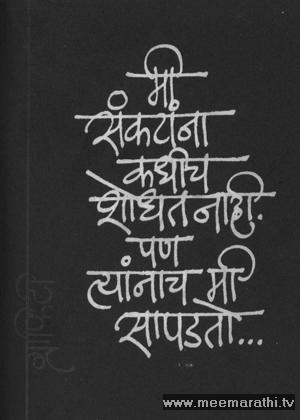 मी
संकटांना
कधीच
शोधत नाही.
पण
त्यांनाच मी
सापडतो...
ग्राफिटी
www.meemarathi.tv